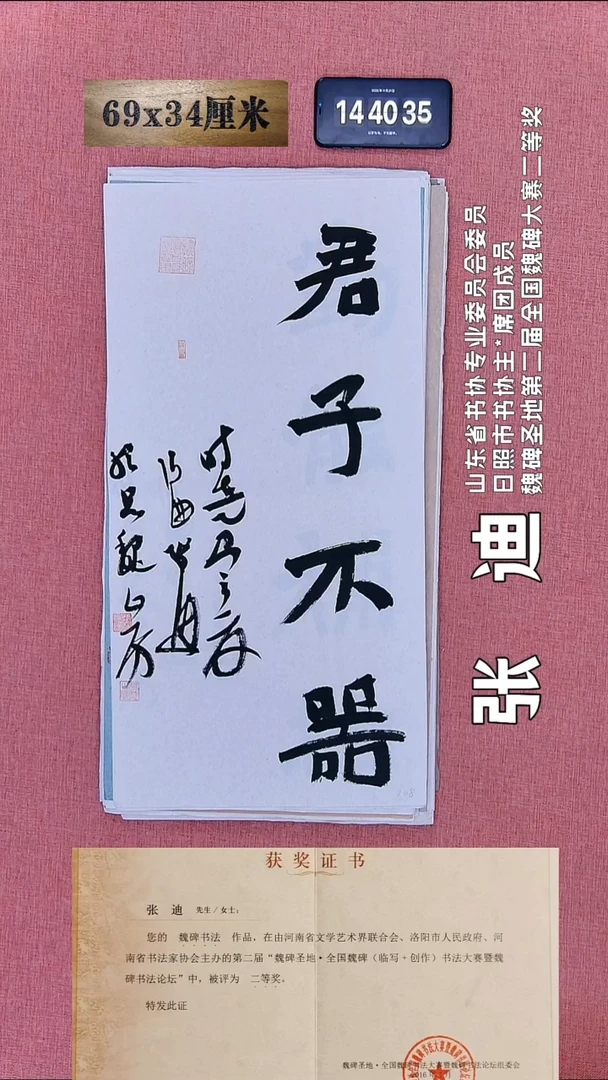 69x34厘米
14 40 35
山东省书协专业委员会委员
日照市书协主*席团成员
魏碑圣地第二届全国魏碑大赛二等奖
张 迪
君子不器
获奖证书
张 迪 先生/女士:
您的 魏碑书法 作品，在由河南省文学艺术界联合会、洛阳市人民政府、河
南省书法家协会主办的第二届“魏碑圣地·全国魏碑（临写+创作）书法大赛暨魏
碑书法论坛”中，被评为 二等奖。
特发此证
魏碑圣地·全国魏碑书法大赛暨魏碑书法论坛组委会